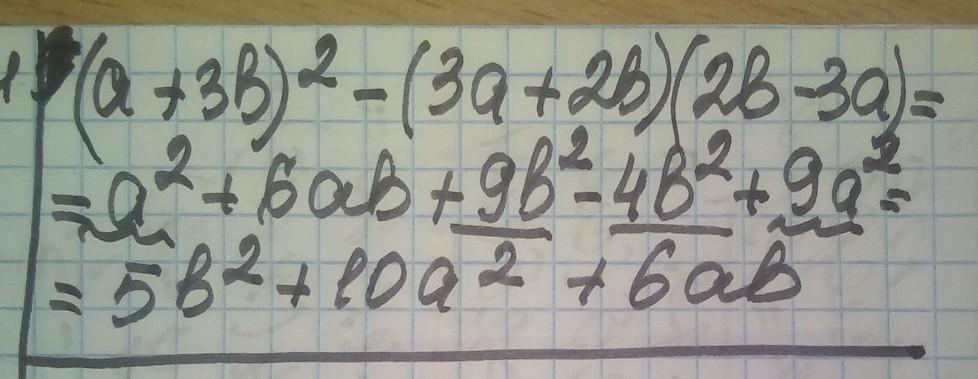 1) (a+3b)² - (3a+2b)(2b-3a)=
=a²+6ab+9b²-4b²+9a²=
=5b²+10a²+6ab